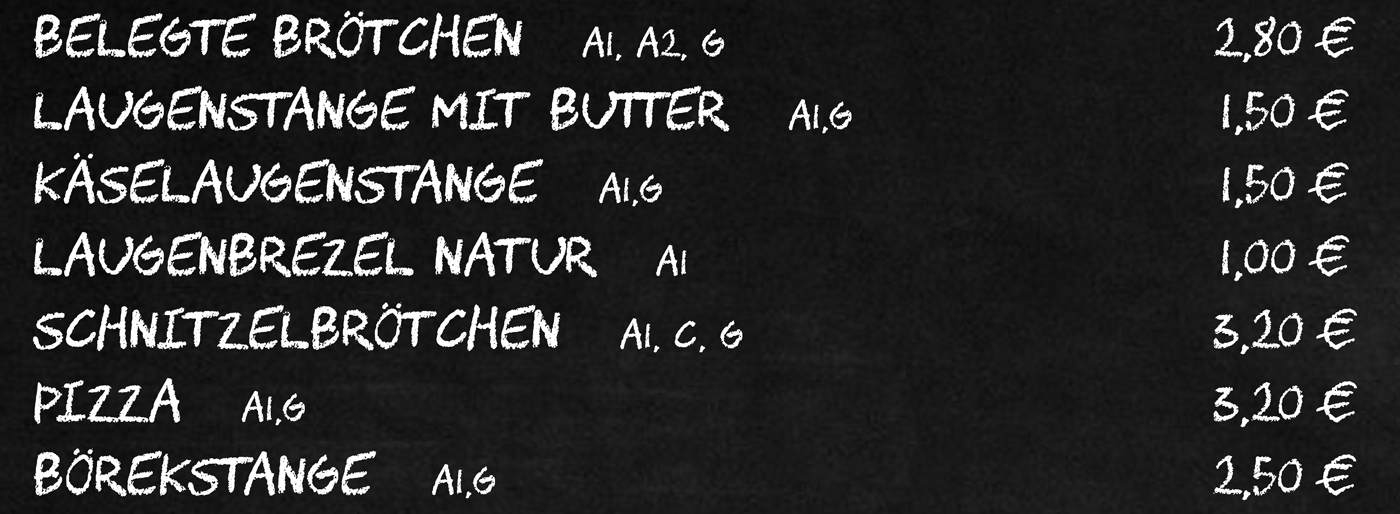 BELEGTE BRÖTCHEN A1, A2, G 2,80 €
LAUGENSTANGE MIT BUTTER A1,G 1,50 €
KÄSELAUGENSTANGE A1,G 1,50 €
LAUGENBREZEL NATUR A1 1,00 €
SCHNITZELBRÖTCHEN A1, C, G 3,20 €
PIZZA A1,G 3,20 €
BÖREKSTANGE A1,G 2,50 €